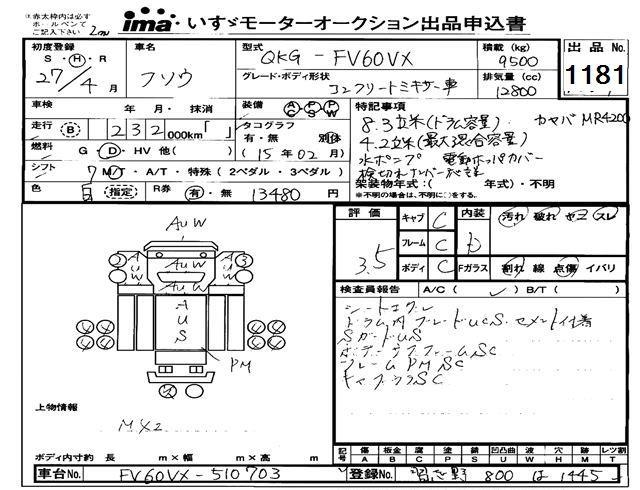 ※赤太枠内は必ず
ボールペンにて
ご記入下さい
ima いすゞモーターオークション出品申込書
初度登録 車名 型式 QKG - FV60VX 積載 (kg) 9500 出品 No.
S・H・R
27/4月 フソウ グレード・ボディ形状 コンクリートミキサー車 排気量 (cc) 12800 1181
車検 年・月・抹消 装備 AC PS PW 特記事項
走行 B 232 000km「 」 タコグラフ 有・無 別体 8.3立米(ドラム容量) カヤバ MR4200
燃料 G・D・HV 他( ) (15年02月) 4.2立米(最大混合容量)
シフト 7 M/T・A/T・特殊 (2ペダル・3ペダル) 水ポンプ 電動ホッパカバー
検切れナンバー
色 白 指定 R券 有・無 13480円 架装物年式:( 年式)・不明
※不明の場合は、不明に○をする。
評価 3.5 キャブ C 内装 D 汚れ 破れ セコ スレ
フレーム C
ボディ C Fガラス 割れ 線 点傷 イバリ
検査員報告 A/C( ✓ ) B/T( )
シートコゲ
ドラム内ブレードUCS.セメント付着
SガードUS
ボデーサブフレームSC
フレームPM SC
キャブウラSC
AUW
2 AUW 3
AUW
AUW
A
U
S
4 4 4 4
4 4 4 4
PM
上物情報
M×2
ボディ内寸約 長 m×幅 m×高 m
記号 傷 A 板金 B 腐 C 塗 P 錆 S 凹凸曲 U 波 W 穴 H 跡 M レツ割 T
車台No. FV60VX-510703 登録No. 習志野 800 は 1445